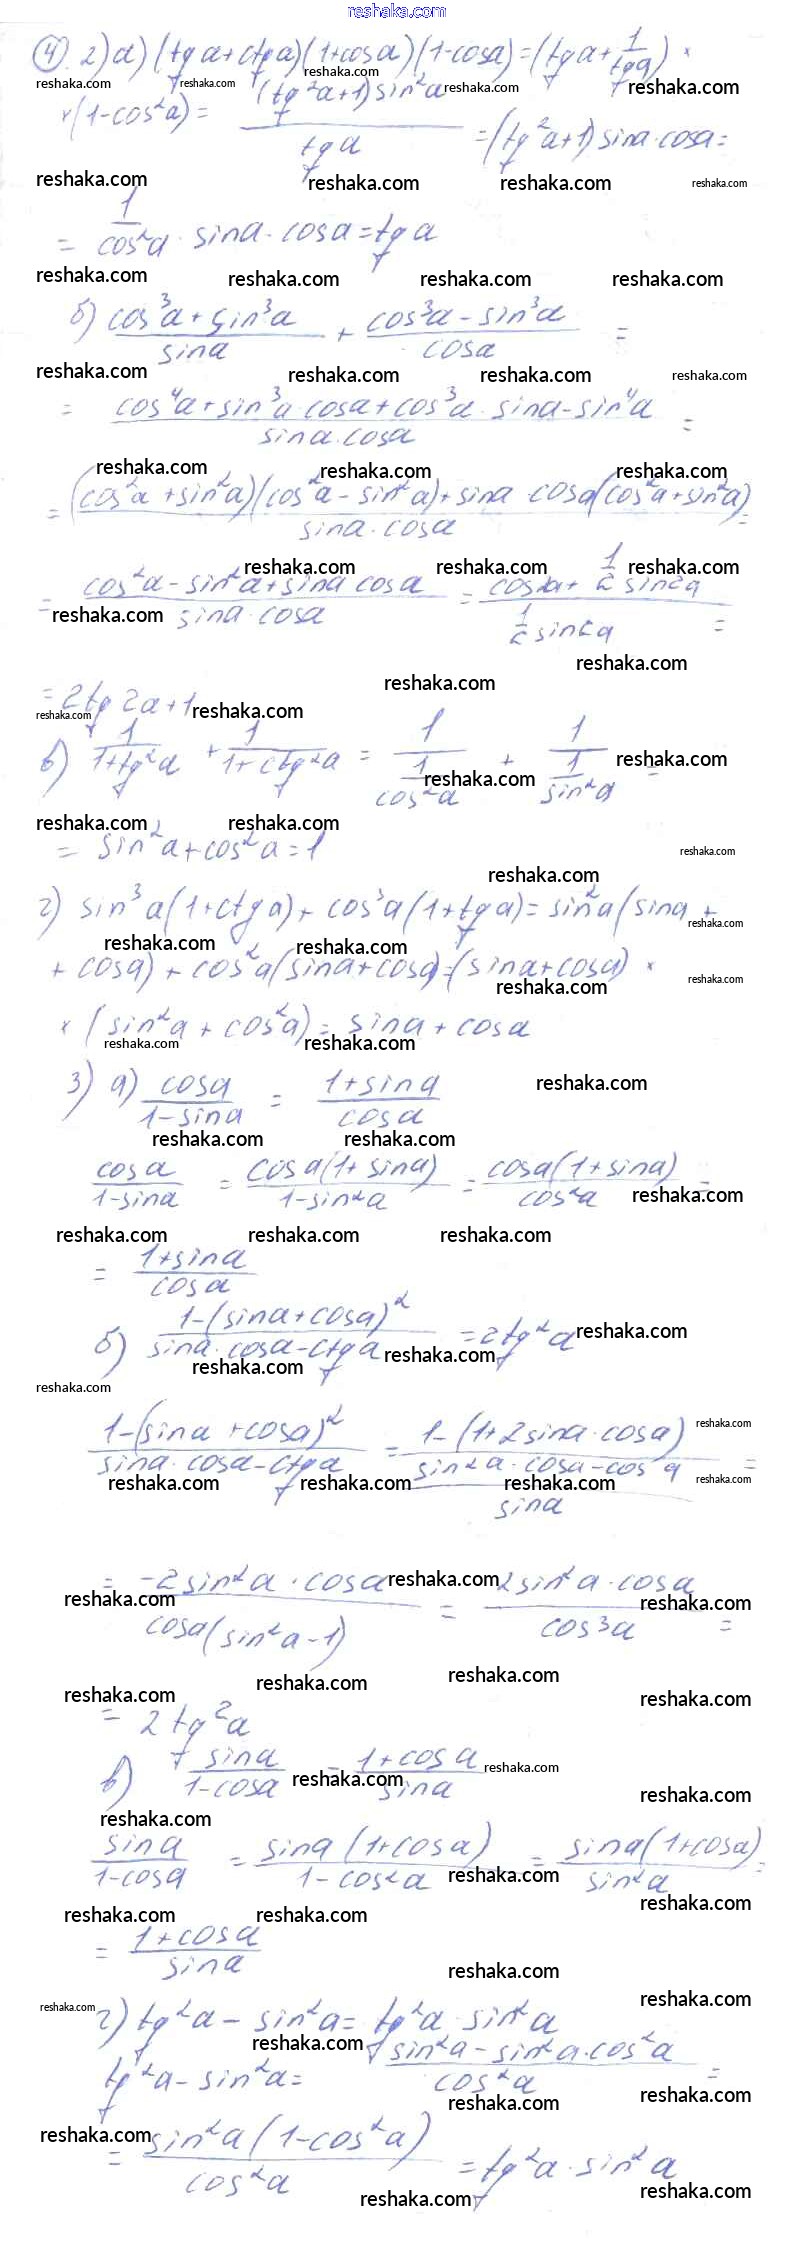 reshaka.com
④ 2) а) (tg a + ctg a)(1+cos a)(1-cos a) = (tg a + 1/tg a) ×
× (1-cos²a) = (tg²a+1) sin²a / tg a = (tg²a+1) sin a · cos a =
= 1/cos²a · sin a · cos a = tg a
б) (cos³a + sin³a)/sin a + (cos³a - sin³a)/cos a =
= (cos⁴a + sin³a · cos a + cos³a · sin a - sin⁴a)/(sin a · cos a) =
= ((cos²a + sin²a)(cos²a - sin²a) + sin a · cos a (cos²a + sin²a))/(sin a · cos a) =
= (cos²a - sin²a + sin a cos a)/(sin a · cos a) = (cos 2a + 1/2 sin 2a)/(1/2 sin 2a) =
= 2tg 2a + 1
в) 1/(1+tg²a) + 1/(1+ctg²a) = 1/(1/cos²a) + 1/(1/sin²a) =
= sin²a + cos²a = 1
г) sin³a (1+ctg a) + cos³a (1+tg a) = sin²a (sin a +
+ cos a) + cos²a (sin a + cos a) = (sin a + cos a) ×
× (sin²a + cos²a) = sin a + cos a
3) а) cos a/(1-sin a) = (1+sin a)/cos a
cos a/(1-sin a) = cos a (1+sin a)/(1-sin²a) = cos a (1+sin a)/cos²a =
= (1+sin a)/cos a
б) (1-(sin a + cos a)²)/(sin a · cos a - ctg a) = 2tg²a
(1-(sin a + cos a)²)/(sin a · cos a - ctg a) = (1-(1+2 sin a · cos a))/((sin²a · cos a - cos a)/sin a) =
= -2 sin²a · cos a/(cos a (sin²a - 1)) = 2 sin²a · cos a/cos³a =
= 2 tg²a
в) sin a/(1-cos a) = (1+cos a)/sin a
sin a/(1-cos a) = sin a (1+cos a)/(1-cos²a) = sin a (1+cos a)/sin²a =
= (1+cos a)/sin a
г) tg²a - sin²a = tg²a · sin²a
tg²a - sin²a = (sin²a - sin²a · cos²a)/cos²a =
= sin²a (1-cos²a)/cos²a = tg²a · sin²a